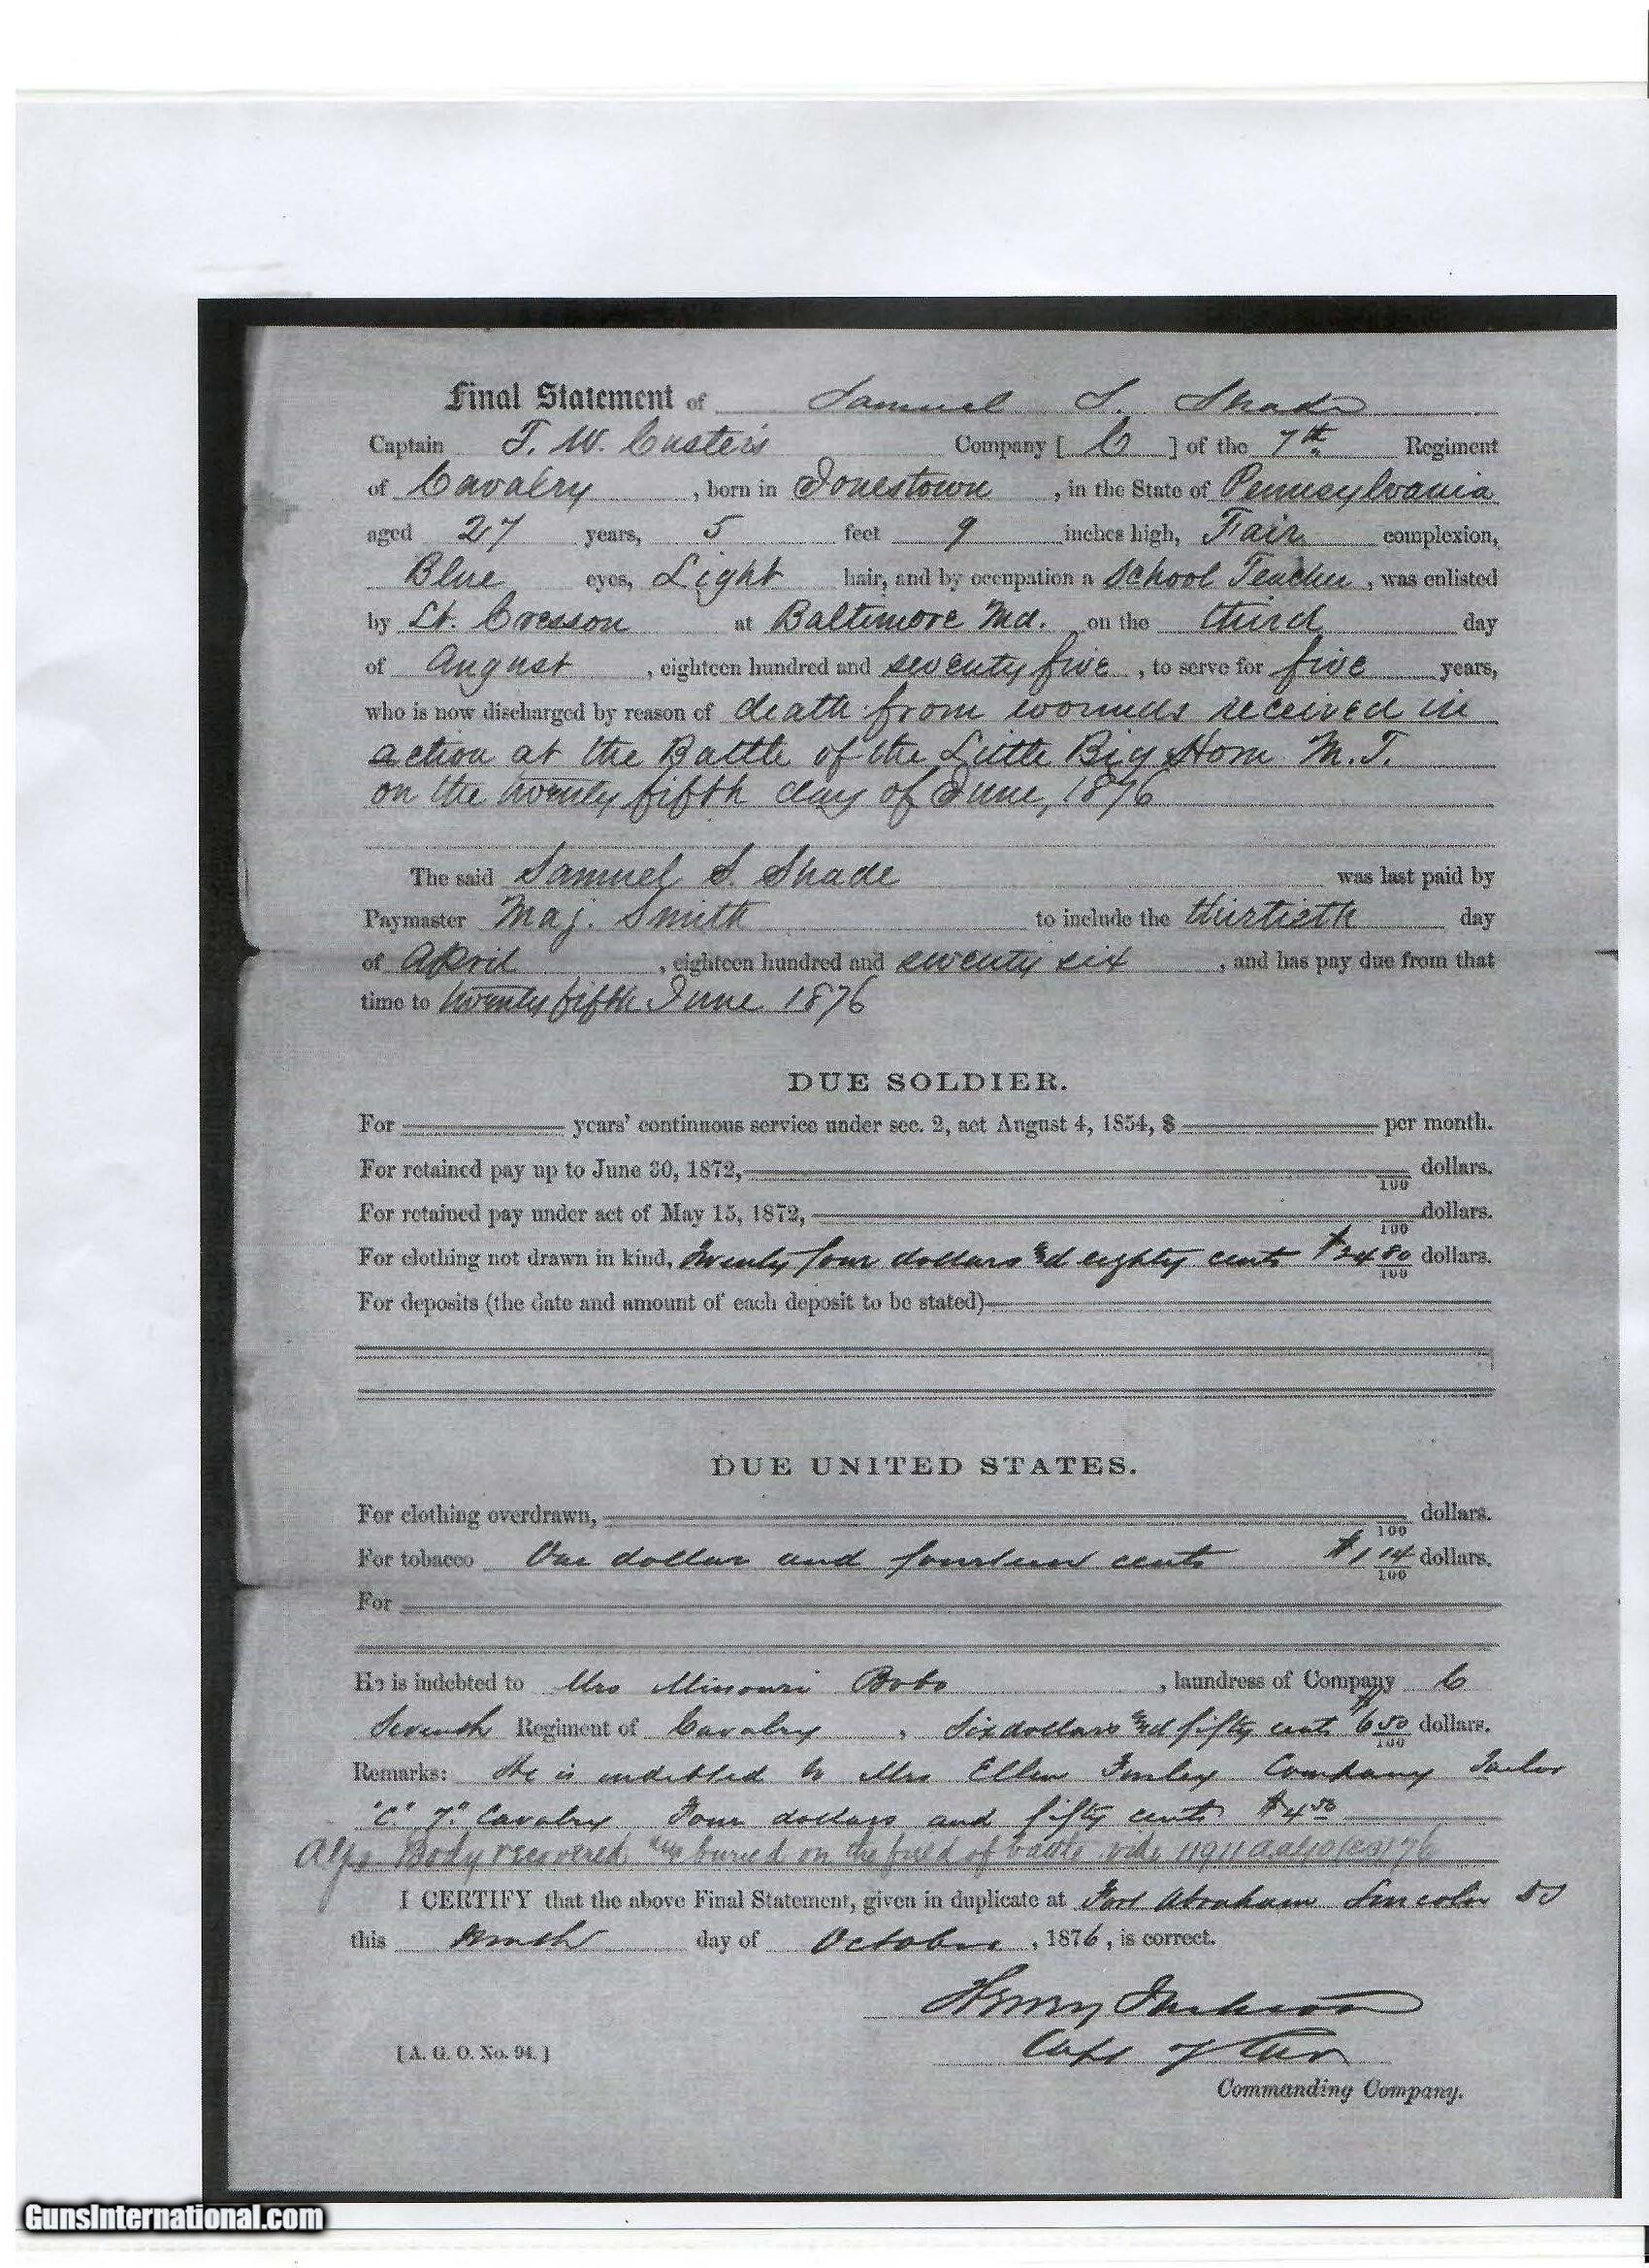 Final Statement of Samuel S. Shade
Captain T. W. Custer's Company [ C ] of the 7th Regiment
of Cavalry , born in Jonestown , in the State of Pennsylvania
aged 27 years, 5 feet 9 inches high, Fair complexion,
Blue eyes, Light hair, and by occupation a School Teacher , was enlisted
by Lt. Cresson at Baltimore Md. on the third day
of August , eighteen hundred and seventy five , to serve for five years,
who is now discharged by reason of death from wounds received in
action at the Battle of the Little Big Horn M.T.
on the twenty fifth day of June, 1876
The said Samuel S. Shade was last paid by
Paymaster Maj. Smith to include the thirtieth day
of April , eighteen hundred and seventy six , and has pay due from that
time to twenty fifth June 1876
DUE SOLDIER.
For years' continuous service under sec. 2, act August 4, 1854, $ per month.
For retained pay up to June 30, 1872, /100 dollars.
For retained pay under act of May 15, 1872, /100 dollars.
For clothing not drawn in kind, Twenty four dollars and eighty cents $24 80/100 dollars.
For deposits (the date and amount of each deposit to be stated)
DUE UNITED STATES.
For clothing overdrawn, /100 dollars.
For tobacco One dollar and fourteen cents $1 14/100 dollars.
For
He is indebted to Mrs Missouri Bobo , laundress of Company C
Seventh Regiment of Cavalry , Six dollars and fifty cents $6 50/100 dollars.
Remarks: He is indebted to Mrs Ellen Finley Company Tailor
"C" 7" Cavalry Four dollars and fifty cents $4 50
Body recovered and buried on the field of battle vide
I CERTIFY that the above Final Statement, given in duplicate at Fort Abraham Lincoln DT
this day of October , 1876, is correct.
Henry Jackson
Capt 7 Cav
[A. G. O. No. 94.]
Commanding Company.
GunsInternational.com